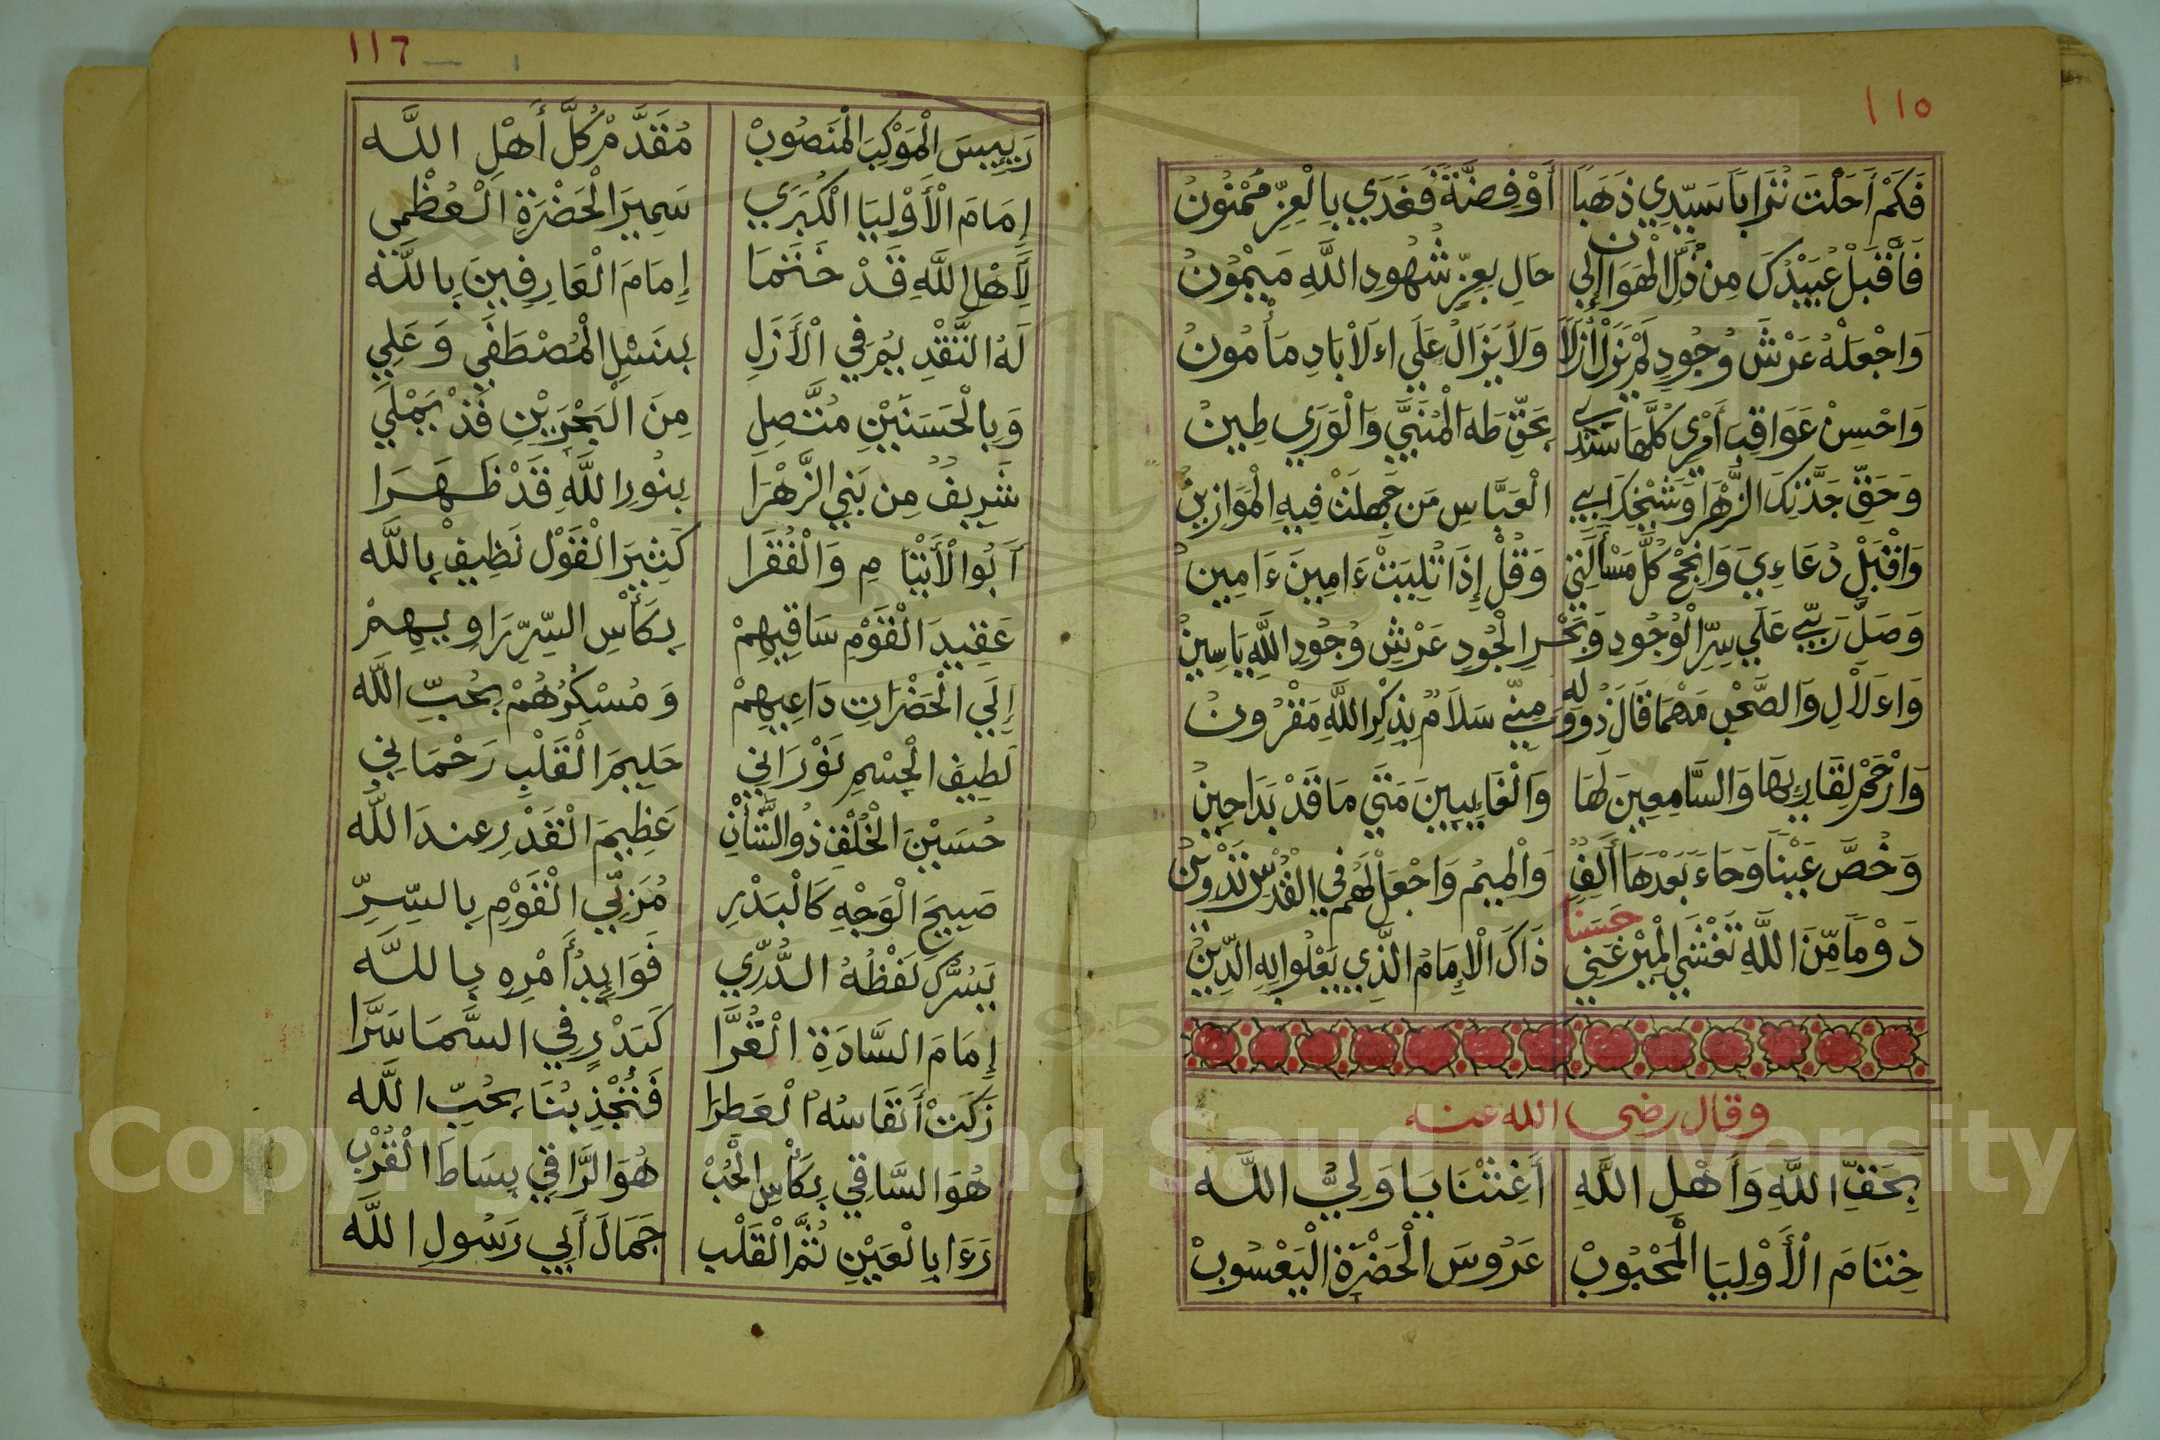 ١١٥
فَكَمْ أَحَلْتَ تُرَابًا سَيِّدِي ذَهَبًا أَوْ فِضَّةً فَغَدَي بِالْعِزِّ مَمْنُونُ
فَأَقْبَلْ عُبَيْدُكَ مِن ذُلِّ الْهَوَانِ إِلَي حَالٍ بِعِزِّ شُهُودِ اللَّهِ مَيْمُونُ
وَاجْعَلْهُ عَرْشَ وُجُودٍ لَمْ يَزَلْ أَزَلًا وَلَا يَزَالُ عَلَي اءَلْابَادِ مَأْمُونُ
وَاحْسِنْ عَوَاقِبَ أَمْرِي كُلَّهَا سَنَدِي بِحَقِّ طَهَ الْمُنَبَّي وَالْوَرَي طِينُ
وَحَقِّ جَدَّتِكَ الزَّهْرَا وَشَيْخِكَ أَبِي الْعَبَّاسِ مَن جَهِلَتْ فِيهِ الْمَوَازِينُ
وَاقْبَلْ دُعَاءِيَ وَانْجِحْ كُلَّ مَسْأَلَتِي وَقُلْ إِذَا تُلِيَتْ ءَامِينَ ءَامِينُ
وَصَلِّ رَبِّي عَلَي سِرِّ الْوُجُودِ وَبَحْرِ الْجُودِ عَرْشِ وُجُودِ اللَّهِ يَاسِينُ
وَاءَلْالِ وَالصَّحْبِ مَهْمَا قَالَ ذُو وَلَهٍ مِنِّي سَلَامٌ بِذِكْرِ اللَّهِ مَقْرُونُ
وَارْحَمْ لِقَارِيهَا وَالسَّامِعِينَ لَهَا وَالْغَائِبِينَ مَتَي مَا قَدْ بَدَا حِينُ
وَخُصَّ عَيْنًا وَحَاءَ بَعْدَهَا أَلِفٌ وَالْمِيمِ وَاجْعَلْ لَهُمْ فِي الْقُدْسِ تَدْوِينُ
دَوْمًا مِّنَ اللَّهِ تَغْشَي الْمِيْرَغَنِي حَسَنًا ذَاكَ الْإِمَامُ الَّذِي يَعْلُوا بِهِ الدِّينُ
وقال رضى الله عنه
بِحَقِّ اللَّهِ وَأَهْلِ اللَّهِ أَغِثْنَا يَا وَلِيَّ اللَّه
خِتَامَ الْأَوْلِيَا الْمَحْبُوبْ عَرُوسَ الْحَضْرَةِ الْيَعْسُوبْ
١١٦
رَئِيسَ الْمَوْكِبِ الْمَنصُوبْ مُقَدَّمْ كُلِّ أَهْلِ اللَّه
إِمَامَ الْأَوْلِيَا الْكُبْرَي سَمِيرَ الْحَضْرَةِ الْعُظْمي
لِأَهْلِ اللَّهِ قَدْ خَتَمَا إِمَامَ الْعَارِفِينَ بِاللَّه
لَهُ التَّقْدِيمُ فِي الْأَزَلِ بِنَسْلِ الْمُصْطَفَي وَعَلِي
وَبِالْحَسَنَيْنِ مُتَّصِلِ مِنَ الْبَحْرَيْنِ قَدْ يَمْلِي
شَرِيفٌ مِن بَنِي الزَّهْرَا بِنُورِ اللَّهِ قَدْ ظَهَرَا
أَبُوا الْأَيْتَامِ وَالْفُقَرَا كَثِيرَ الْقَوْلِ نَظِيفْ بِاللَّه
عَقِيدَ الْقَوْمِ سَاقِيهِمْ بِكَأْسِ السِّرِّ رَاوِيهِمْ
إِلَي الْحَضْرَاتِ دَاعِيهِمْ وَمُسْكِرُهُمْ بِحُبِّ اللَّه
لَطِيفَ الْجِسْمِ نَوْرَانِي حَلِيمَ الْقَلْبِ رَحْمَانِي
حُسَيْنَ الْخُلْقِ ذُو الشَّأْنِ عَظِيمَ الْقَدْرِ عِندَ اللَّه
صَبِيحَ الْوَجْهِ كَالْبَدْرِ مُرَبِّي الْقَوْمِ بِالسِّرِّ
يَسُرُّكَ لَفْظُهُ الدُّرِّي فَوَايِدُ أَمْرِهِ بِاللَّه
إِمَامَ السَّادَةِ الْغُرَّا كَبَدْرٍ فِي السَّمَا سَرَّا
زَكَتْ أَنفَاسُهُ الْعَطِرَا فَتُجْذِبُنَا بِحُبِّ اللَّه
هُوَ السَّاقِي بِكَأْسِ الْحُبْ هُوَ الرَّاقِي بِسَاطَ الْقُرْبْ
رَءَا بِالْعَيْنِ ثُمَّ الْقَلْب جَمَالَ أَبِي رَسُولِ اللَّه
Copyright © King Saud University